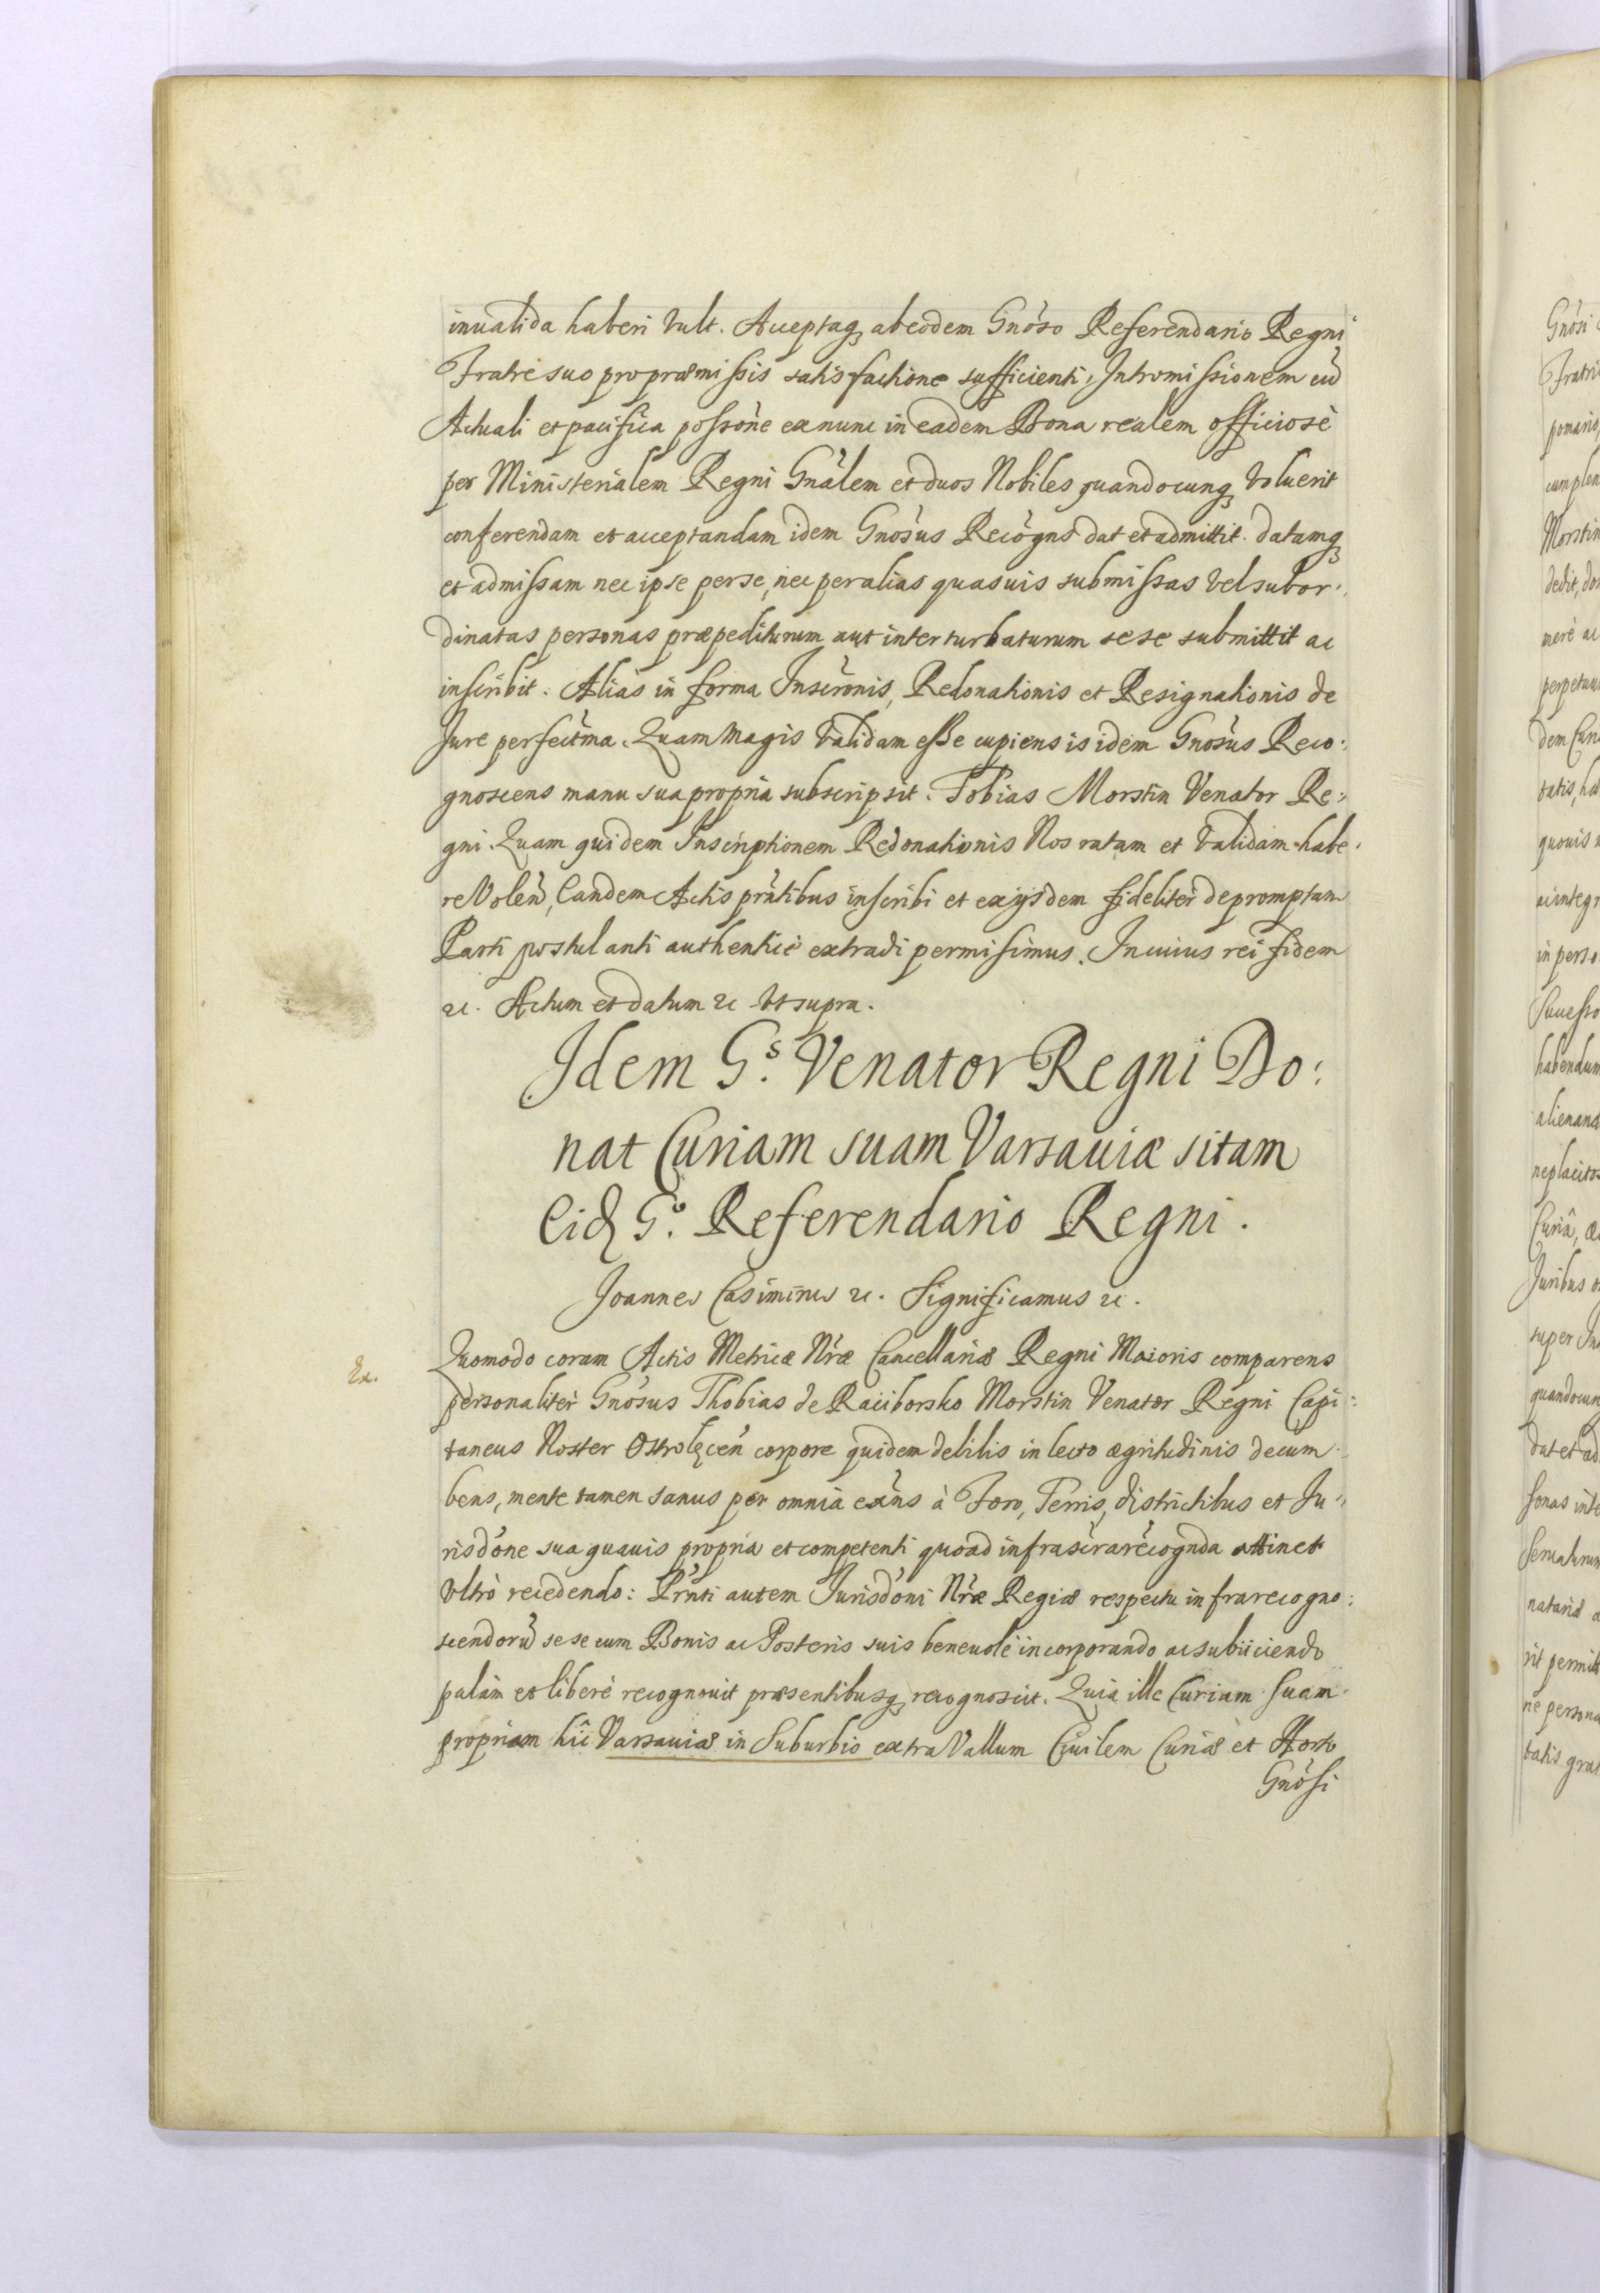 inualida haberi vult. Acceptaq₃ ab eodem Gnöso Referendario Regni
Fratre suo pro præmissis satisfactione sufficienti, Intromissionem cũ
Actuali et pacifica possòne ex nunc in eadem Bona realem officiosè
per Ministerialem Regni Gnàlem et duos Nobiles quandocunq₃ voluerit
conferendam et acceptandam idem Gnòsus Recògns dat et admittit. datamq₃
et admissam nec ipse per se, nec per alias quasuis submissas vel subor:
dinatas personas præpediturum aut interturbaturum sese submittit ac
inscribit. Alias in forma Inscrònis, Redonationis et Resignationis de
Jure perfectma. Quam magis validam esse cupiens is idem Gnòsus Reco:
gnoscens manu sua propria subscripsit. Tobias Morstin Venator Re:
gni. Quam quidem Inscriptionem Redonationis Nos ratam et validam habe:
re volen̄, Eandem Actis prn̄tibus inscribi et ex ijsdem fideliter depromptam
Parti postulanti authenticè extradi permisimus. In cuius rei fidem
&c. Actum et datum &c vt supra.
Idem G.s Venator Regni Do:
nat Curiam suam Varsauiæ sitam
Eid G.o Referendario Regni.
Joannes Casimirus &c. Significamus &c.
Quomodo coram Actis Metricæ Nr̄æ Cancellariæ Regni Maioris comparens
Ex.
personaliter Gnòsus Thobias de Raciborsko Morstin Venator Regni Capi:
taneus Noster Ostrołęcen̄ corpore quidem debilis in lecto ægritudinis decum:
bens, mente tamen sanus per omnia exn̄s à Foro, Terris, districtibus et Ju:
risdòne sua quauis propria et competenti quoad infrascr̄a recògnda attinet
vltrò recedendo: Prn̄ti autem Jurisdòni Nr̄æ Regiæ respectu infrarecogno:
scendorũ sese cum Bonis ac Posteris suis beneuolè incorporando ac subiiciendo
palàm et liberè recognouit præsentibusq₃ recognoscit. Quia ille Curiam suam
propriam hîc Varsauiæ in Suburbio extra Vallum Ciuilem Curiæ et Horto
Gnòsi